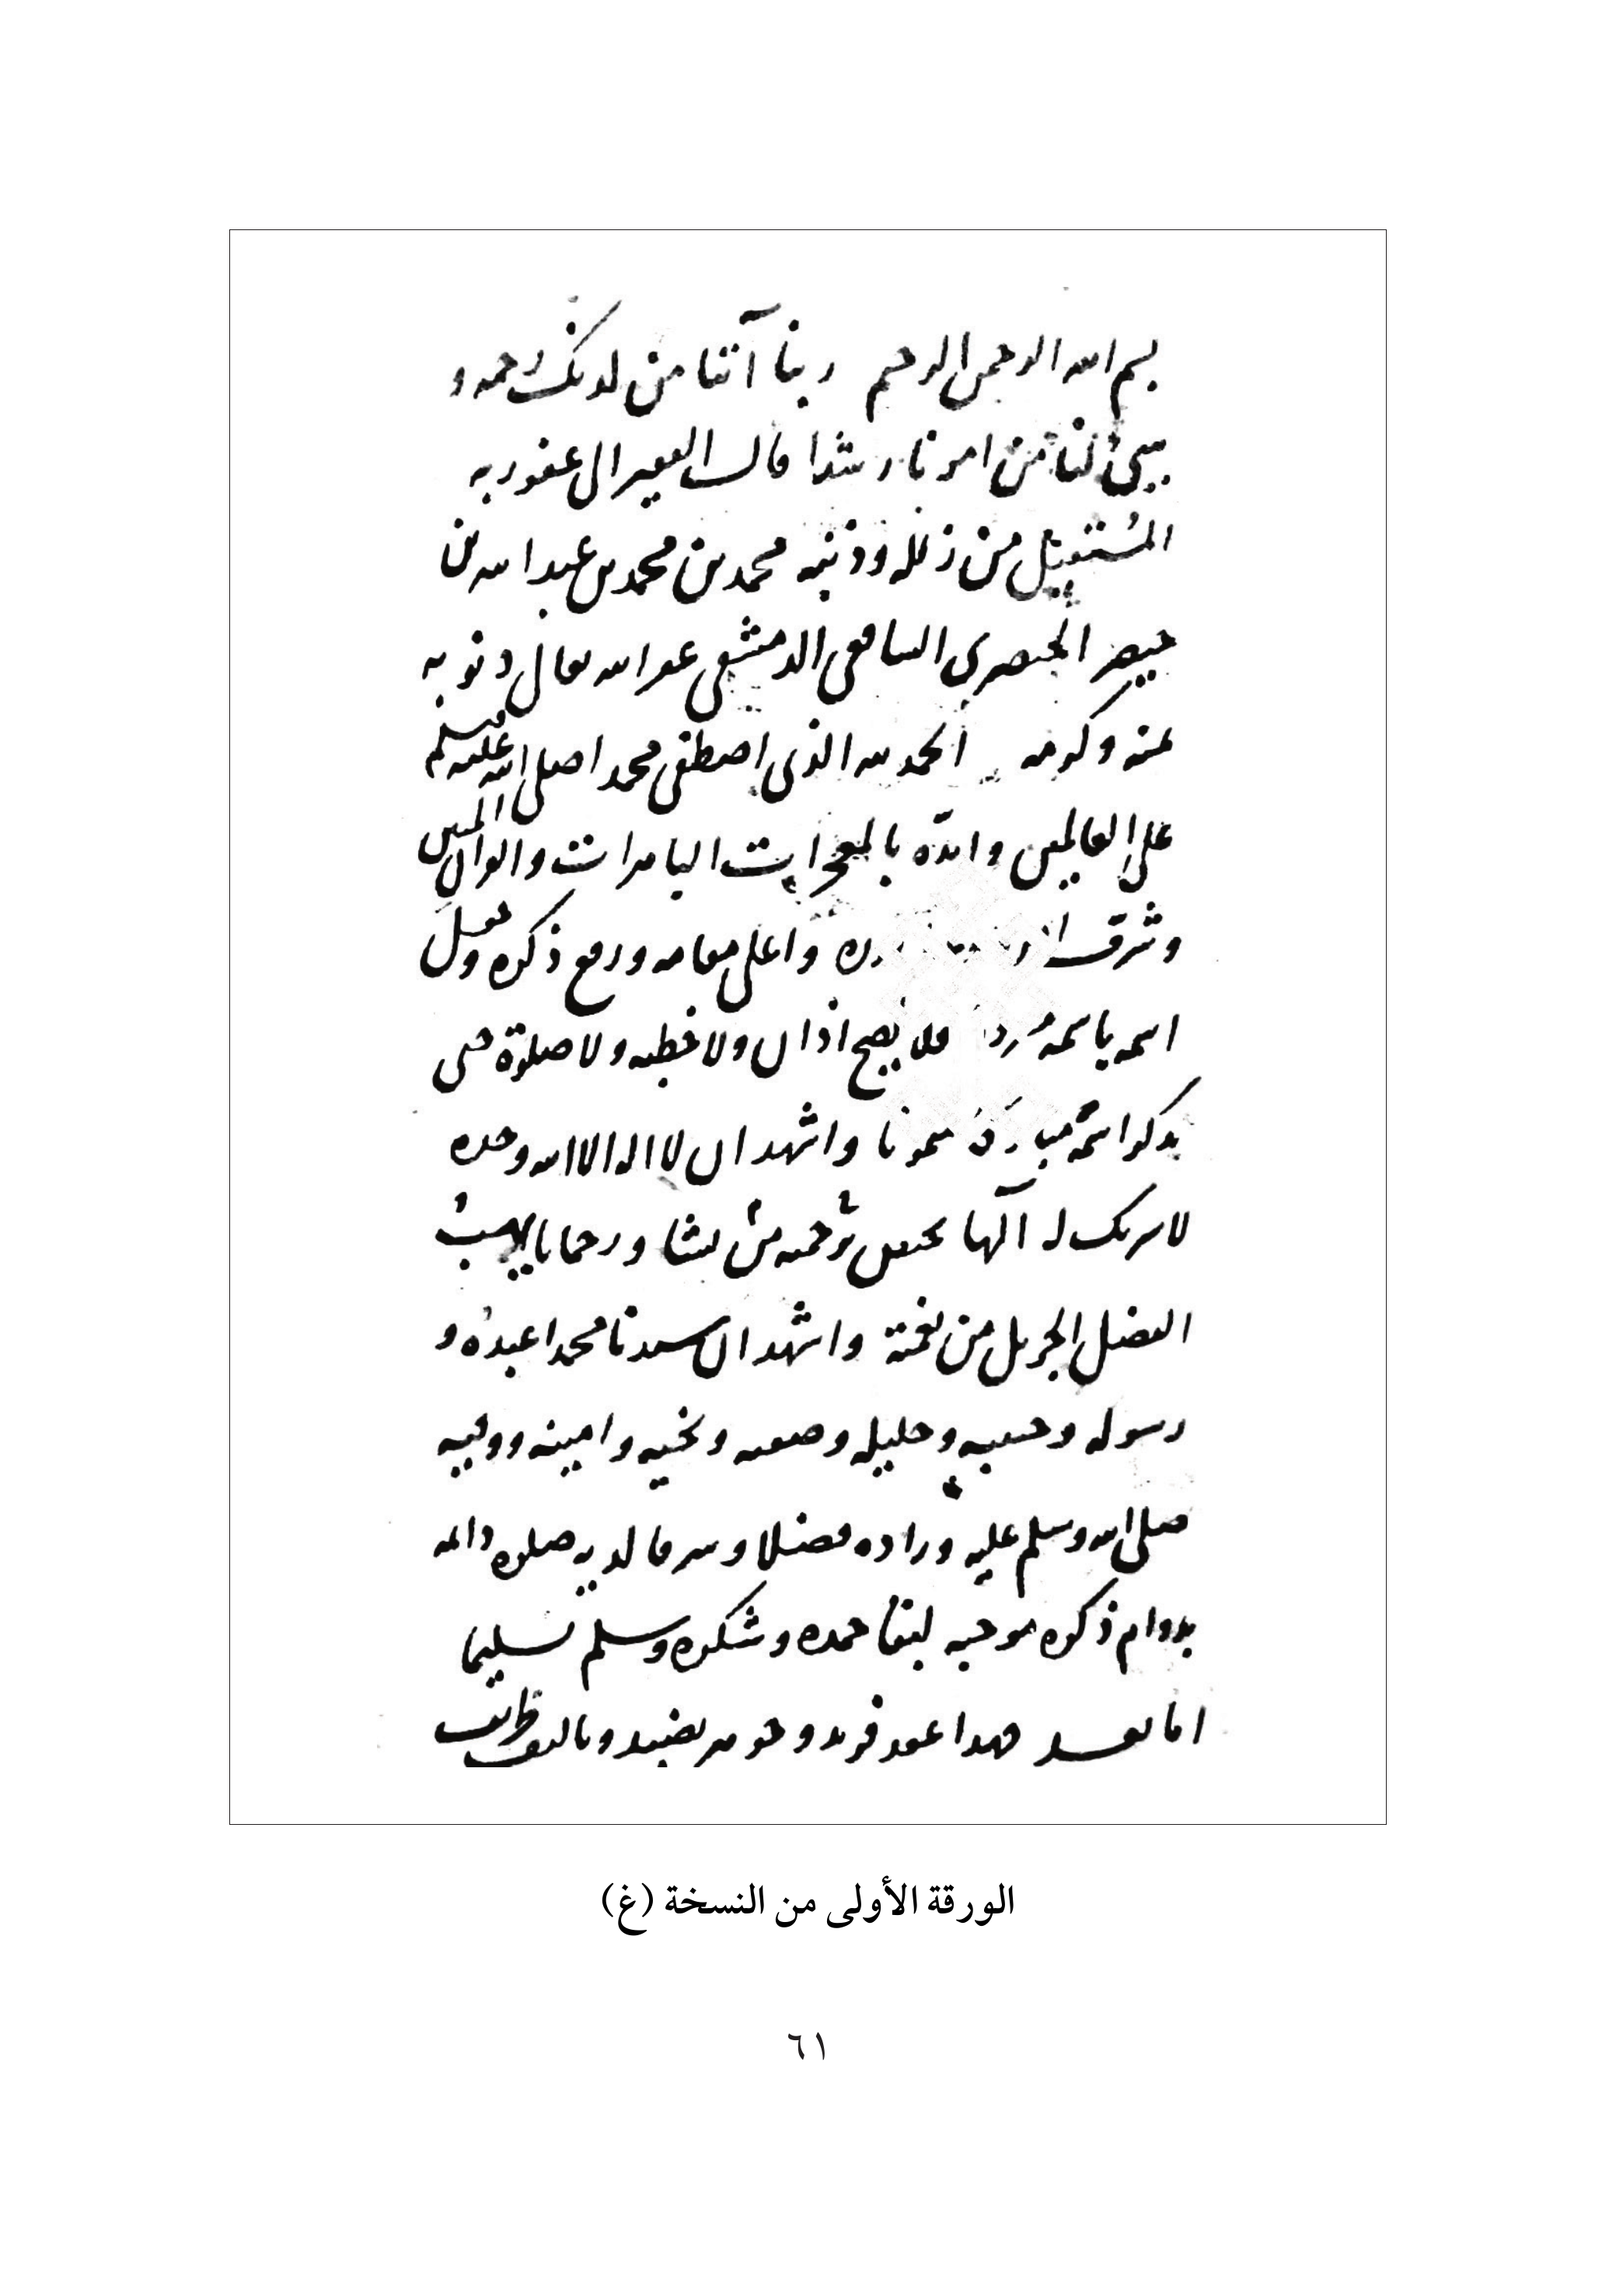 بسم الله الرحمن الرحيم ربنا آتنا من لدنك رحمة و
هيئ لنا من امرنا رشدا قال الفقير الى عفو ربه
المستقيل من زلله وذنبه محمد بن محمد بن عبد الله بن
خيضر الخيضري الشافعي الدمشقي غفر الله تعالى ذنوبه
بمنه وكرمه الحمد لله الذي اصطفى محمدا صلى الله عليه وسلم
على العالمين وايده بالمعجزات الباهرات والقران المبين
وشرف واعلى مقامه ورفع ذكره وجعل
اسم باسمه فلا يصح اذان ولا خطبه ولا صلوة حتى
يذكر اسمه ميمونا واشهد ان لا اله الا الله وحده
لا شريك له الها يختص برحمته من يشا ورحمانا يهب
الفضل الجزيل من نعمته واشهد ان سيدنا محمدا عبده و
رسوله وحبيبه وخليله وصفيه ونجيه وامينه ووليه
صلى الله وسلم عليه وزاده فضلا وشرفا لديه صلوة دائمه
بدوام ذكره موجبه لبقا حمده وشكره وسلم تسليما
اما بعد فهذا عقد فريد وجوهر نضيد
الورقة الأولى من النسخة (غ)
٦١